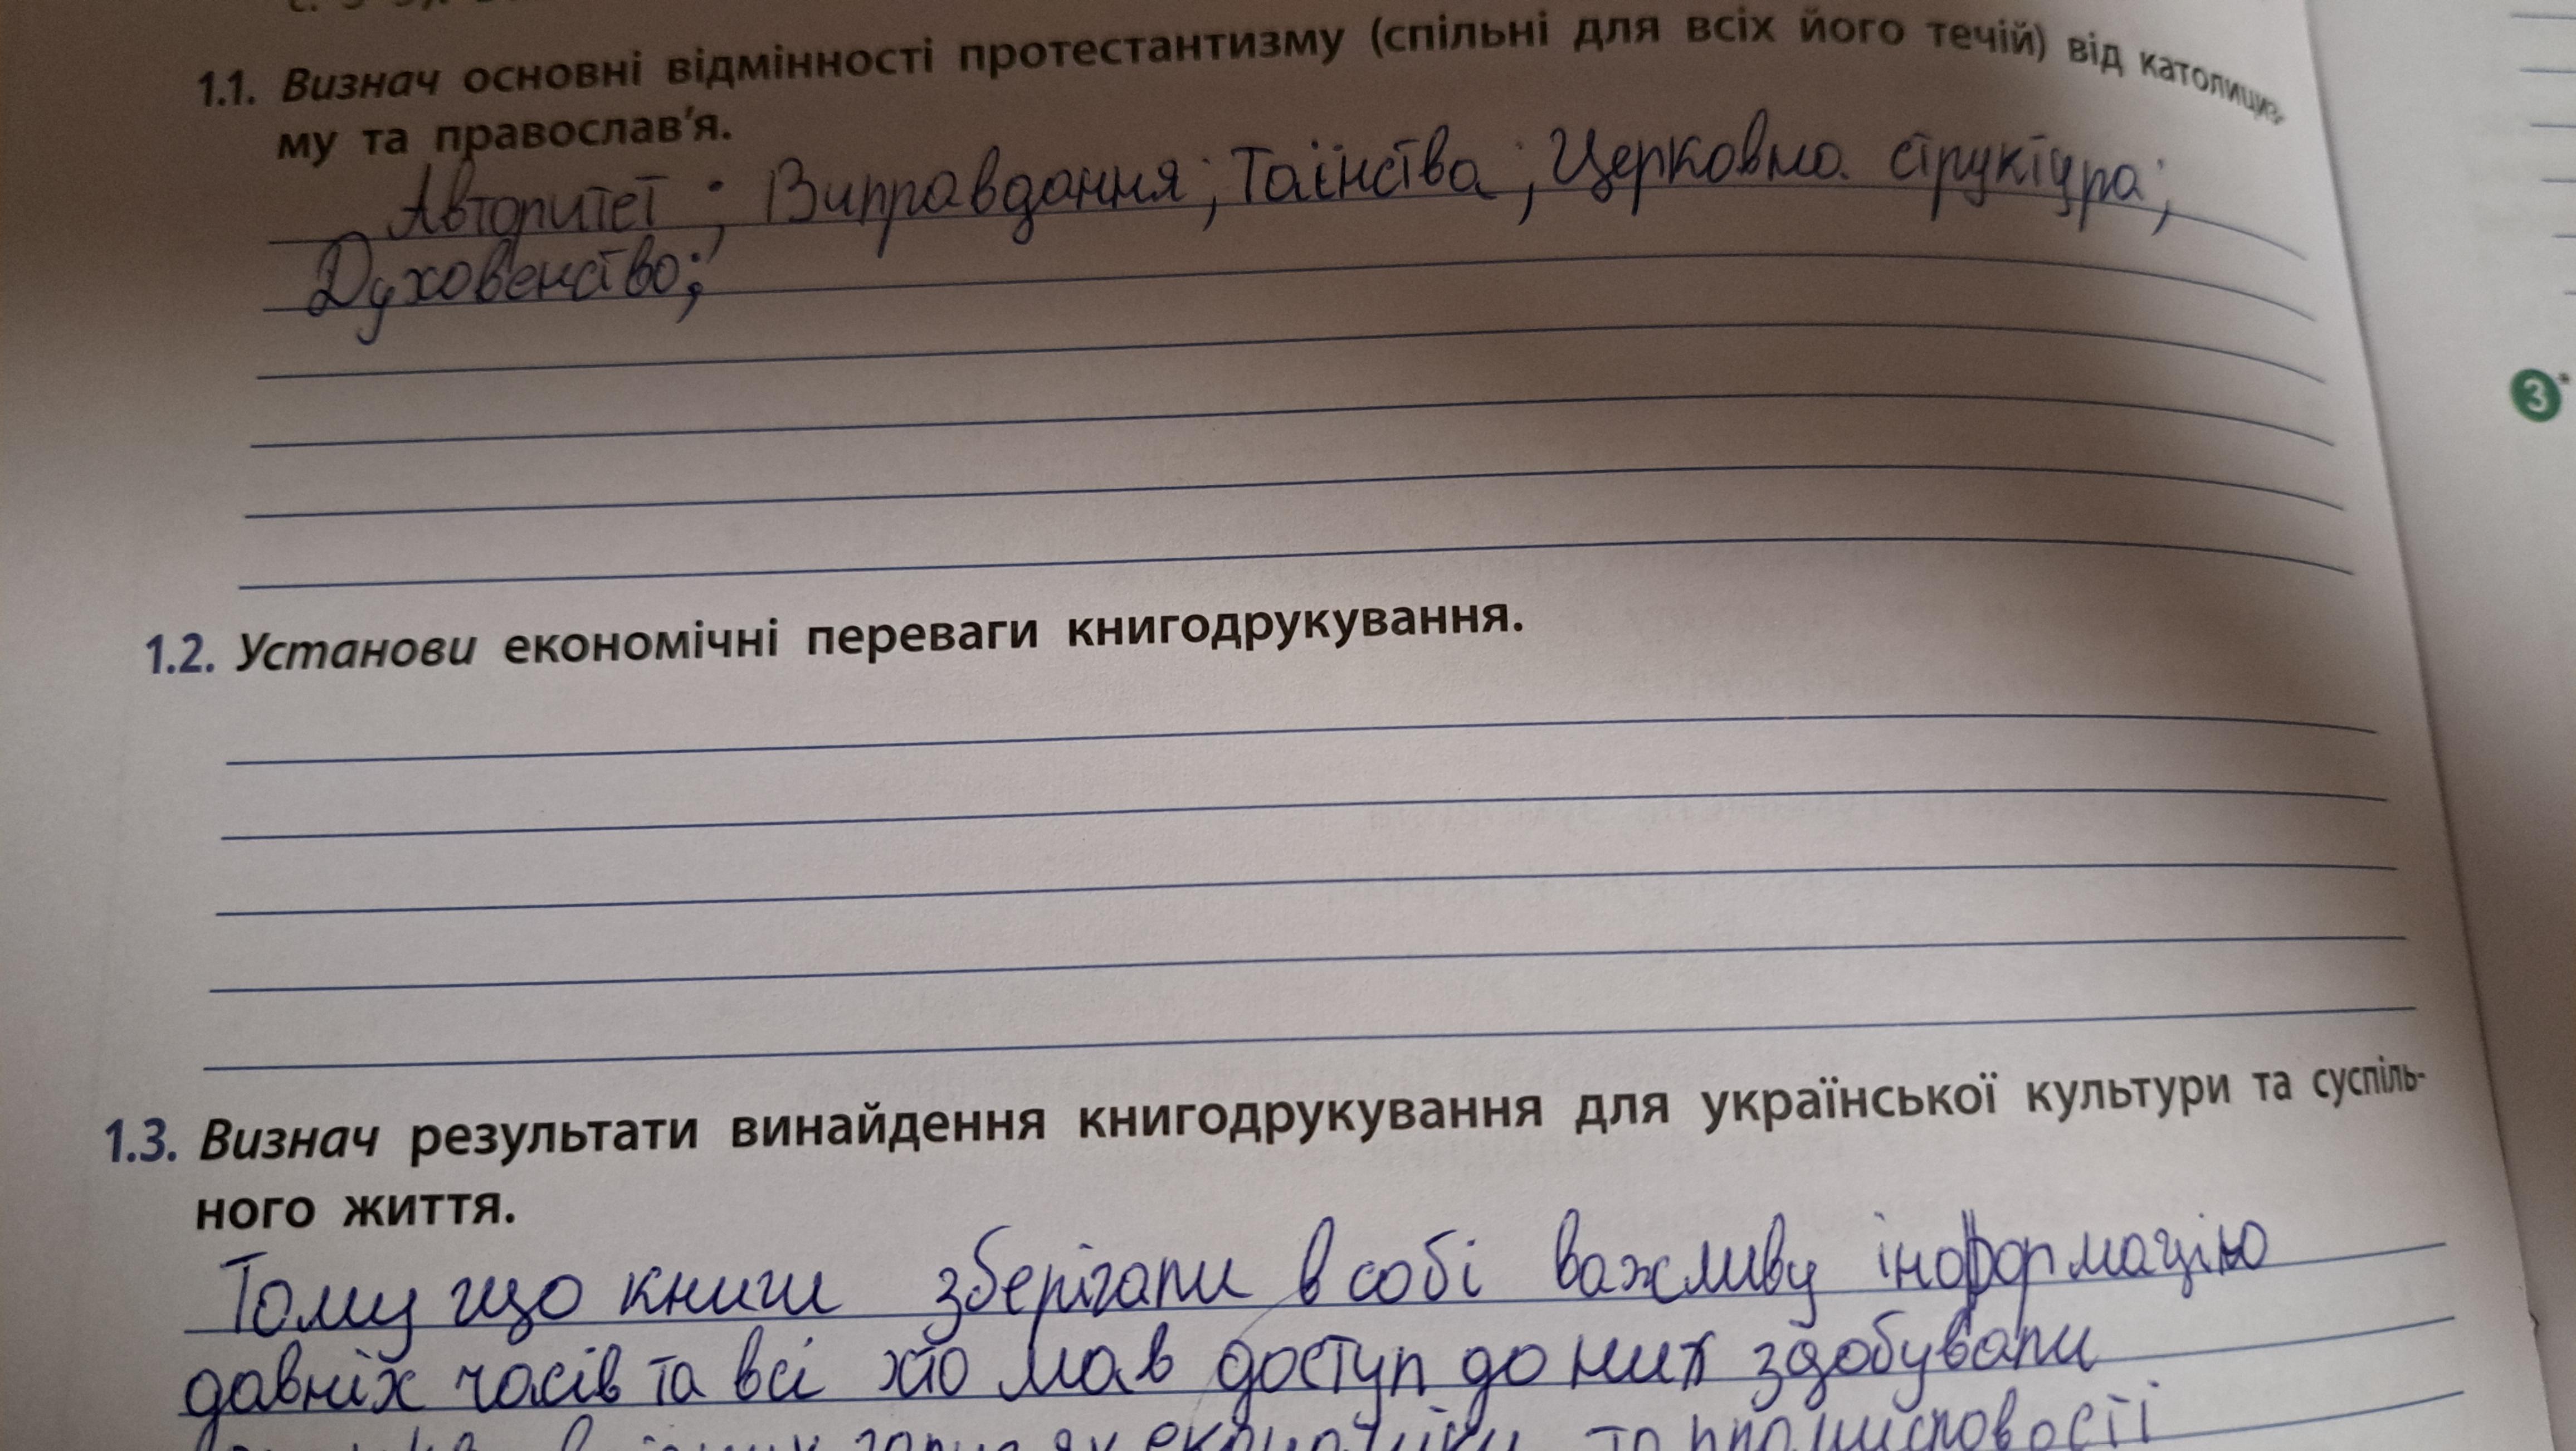 1.1. Визнач основні відмінності протестантизму (спільні для всіх його течій) від католициз-
му та православ'я.
Авторитет ; Виправдання ; Таїнства ; Церковна структура ;
Духовенство ;
1.2. Установи економічні переваги книгодрукування.
1.3. Визнач результати винайдення книгодрукування для української культури та суспіль-
ного життя.
Тому що книги зберігали в собі важливу інформацію
давніх часів та всі хто мав доступ до них здобували
як економіки та промисловості
3